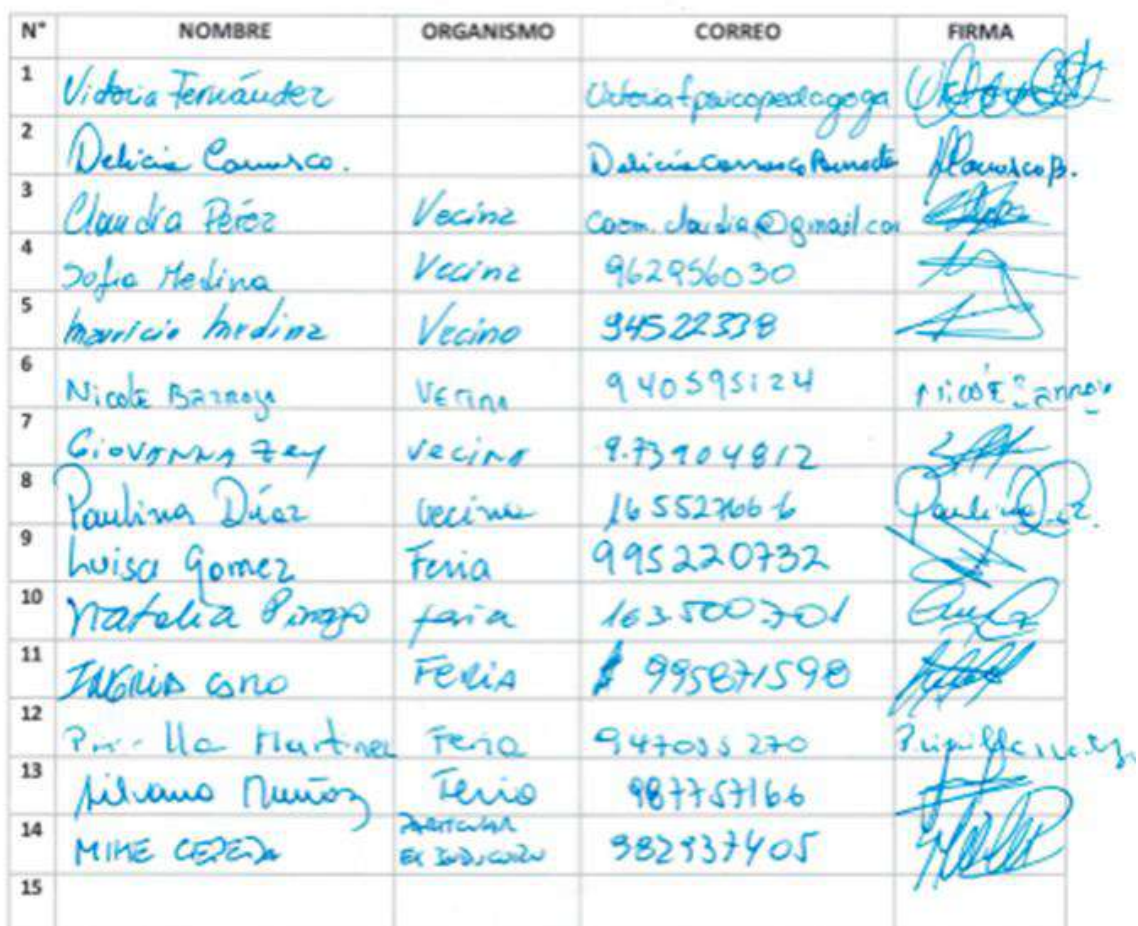 N° NOMBRE ORGANISMO CORREO FIRMA
1 Victoria Fernández Victoriafpsicopedagoga
2 Delicia Carrasco. DeliciaCarrasco
3 Claudia Pérez Vecina Caom.claudia@gmail.com
4 Sofia Medina Vecina 962956030
5 Mauricio Medina Vecino 94522338
6 Nicole Barraza Vecina 940595124
7 Giovanna Zey Vecina 9.73904812
8 Paulina Díaz Vecina 165527666 Paulina Díaz.
9 Luisa Gomez Feria 995220732
10 Natalia feria 163.500.701
11 Feria 995871598
12 Martinez Feria 947055270
13 Silvana Muñoz Feria 987757166
14 MIKE CEPEDA PARTICULAR 982937405
15